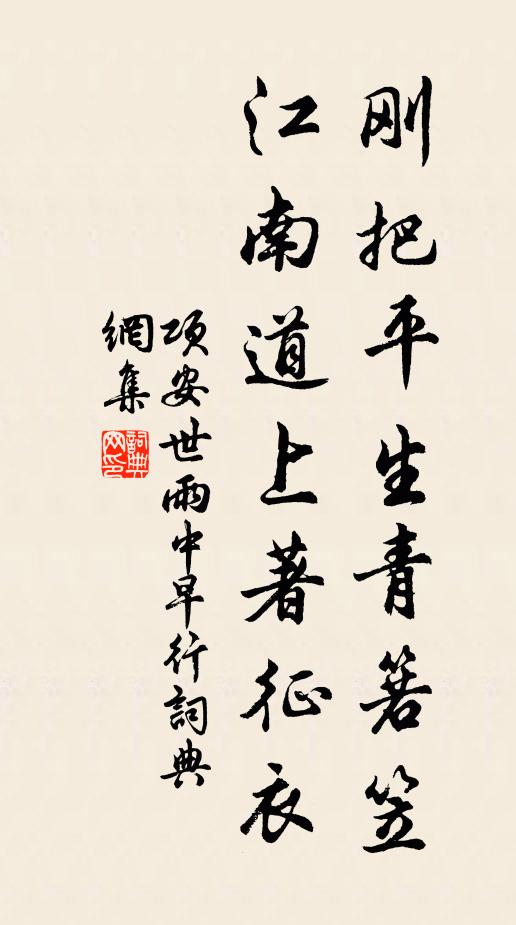 刚把平生青箬笠
江南道上著征衣
项安世雨中早行詞典
網集
詞典
网印